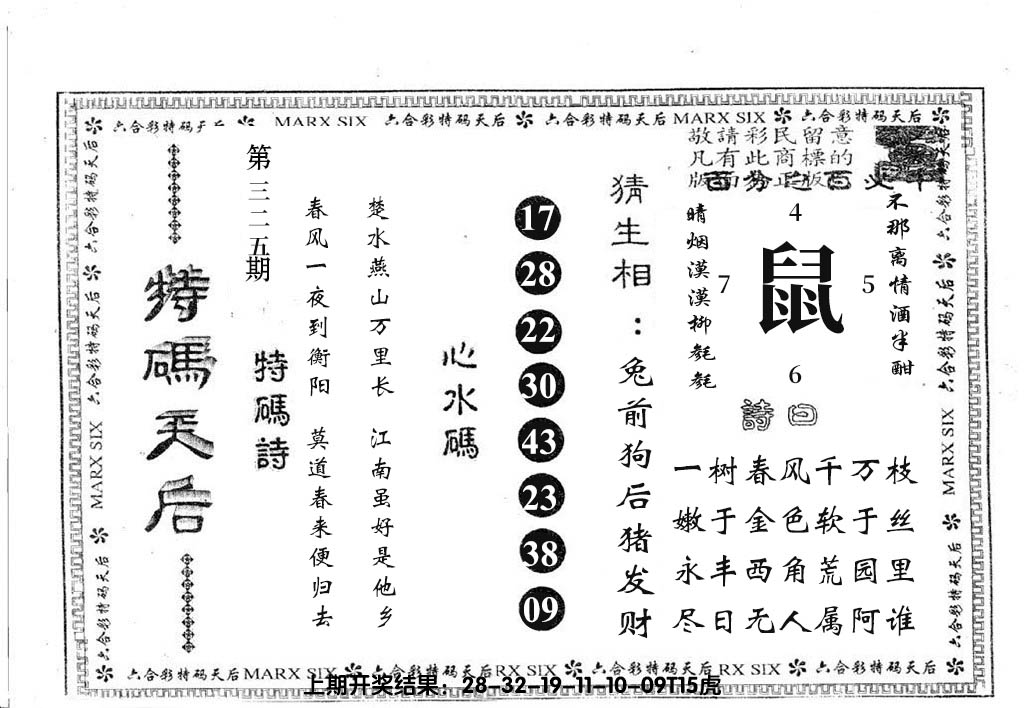 六合彩特码天后 MARX SIX 六合彩特码天后 六合彩特码天后 MARX SIX 六合彩特码天后
六合彩特码天后 六合彩特码天后 MARX SIX 六合彩特码天后
特碼天后
第三二五期
特碼詩
春风一夜到衡阳 莫道春来便归去
楚水燕山万里长 江南虽好是他乡
心水碼
17
28
22
30
43
23
38
09
猜生相：兔前狗后猪发财
敬請彩民留意
凡有此商標的
版面为正版
晴烟漠漠柳毵毵
4
7
鼠
5
6
不那离情酒半酣
詩曰
一树春风千万枝
嫩于金色软于丝
永丰西角荒园里
尽日无人属阿谁
六合彩特码天后 六合彩特码天后 MARX SIX 六合彩特码天后
六合彩特码天后 MARX SIX 六合彩特码天后 RX SIX 六合彩特码天后 RX SIX 六合彩特码天后
上期开奖结果：28-32-19-11-10-09T15虎